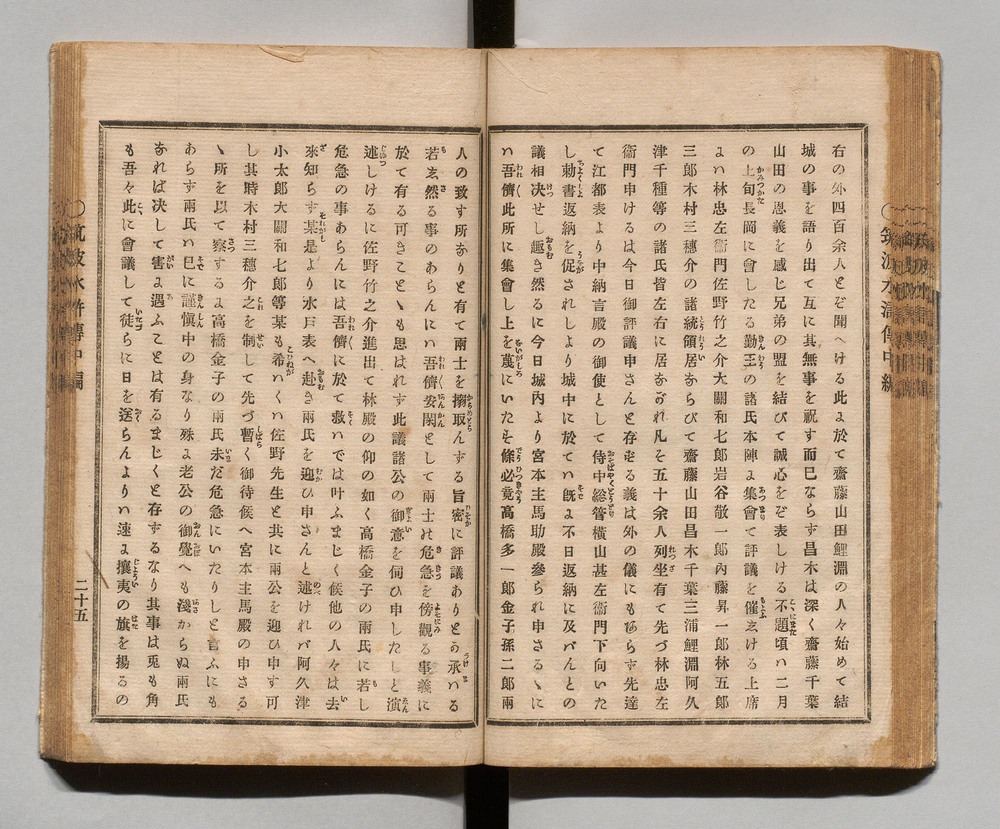 右の外四百余人とぞ聞へける此ょ於て齋藤山田鯉淵の人々始めて結
城の事を語り出て互に其無事を祝す而已ならず昌木は深く齋藤千葉
山田の恩義を感じ兄弟の盟を結びて誠心をぞ表しける不題頃ハ二月
の上旬長岡に會したる勤王の諸氏本陣ょ集會て評議を催ゑける上席
ょハ林忠左衞門佐野竹之介大關和七郎岩谷敬一郎内藤昇一郎林五郎
三郎木村三穗介の諸統領居ならびて齋藤山田昌木千葉三浦鯉淵阿久
津千種等の諸氏皆左右に居ながれ凡そ五十余人列坐有て先づ林忠左
衞門申けるは今日御評議申さんと存ずる義は外の儀にもあらず先達
て江都表より中納言殿の御使として侍中総管横山甚左衞門下向いた
し勅書返納を促されしより城中に於てハ旣ょ不日返納に及バんとの
議相决せし趣き然るに今日城内より宮本主馬助殿參られ申さるゝに
ハ吾儕此所に集會し上を蔑にいたを條必竟高橋多一郎金子孫二郎兩
人の致す所なりと有て兩士を搦取んする旨密に評議ありとう承ハる
若ゑ然る事のあらんにハ吾儕安閑として兩士の危急を傍觀る事義に
於て有る可きことゝも思はれず此議諸公の御意を伺ひ申したしと演
述しけるに佐野竹之介進出て林殿の仰の如く高橋金子の兩氏に若し
危急の事あらんには吾儕に於て救ハでは叶ふまじく候他の人々は去
來知らず某是より水戸表へ赴き兩氏を迎ひ申さんと述けれバ阿久津
小太郎大關和七郎等某も希ハくハ佐野先生と共に兩公を迎ひ申す可
し其時木村三穗介之を制して先づ暫く御待候へ宮本主馬殿の申さる
ゝ所を以て察するょ高橋金子の兩氏未だ危急にいたりしと言ふにも
あらず兩氏ハ已に謹愼中の身なり殊ょ老公の御覺へも淺からぬ兩氏
なれば决して害ょ遇ふことは有るまじくと存ずるなり其事は兎も角
も吾々此に會議して徒らに日を送らんよりハ速ょ攘夷の旗を揚るの
○筑波水滸傳中編
二十五